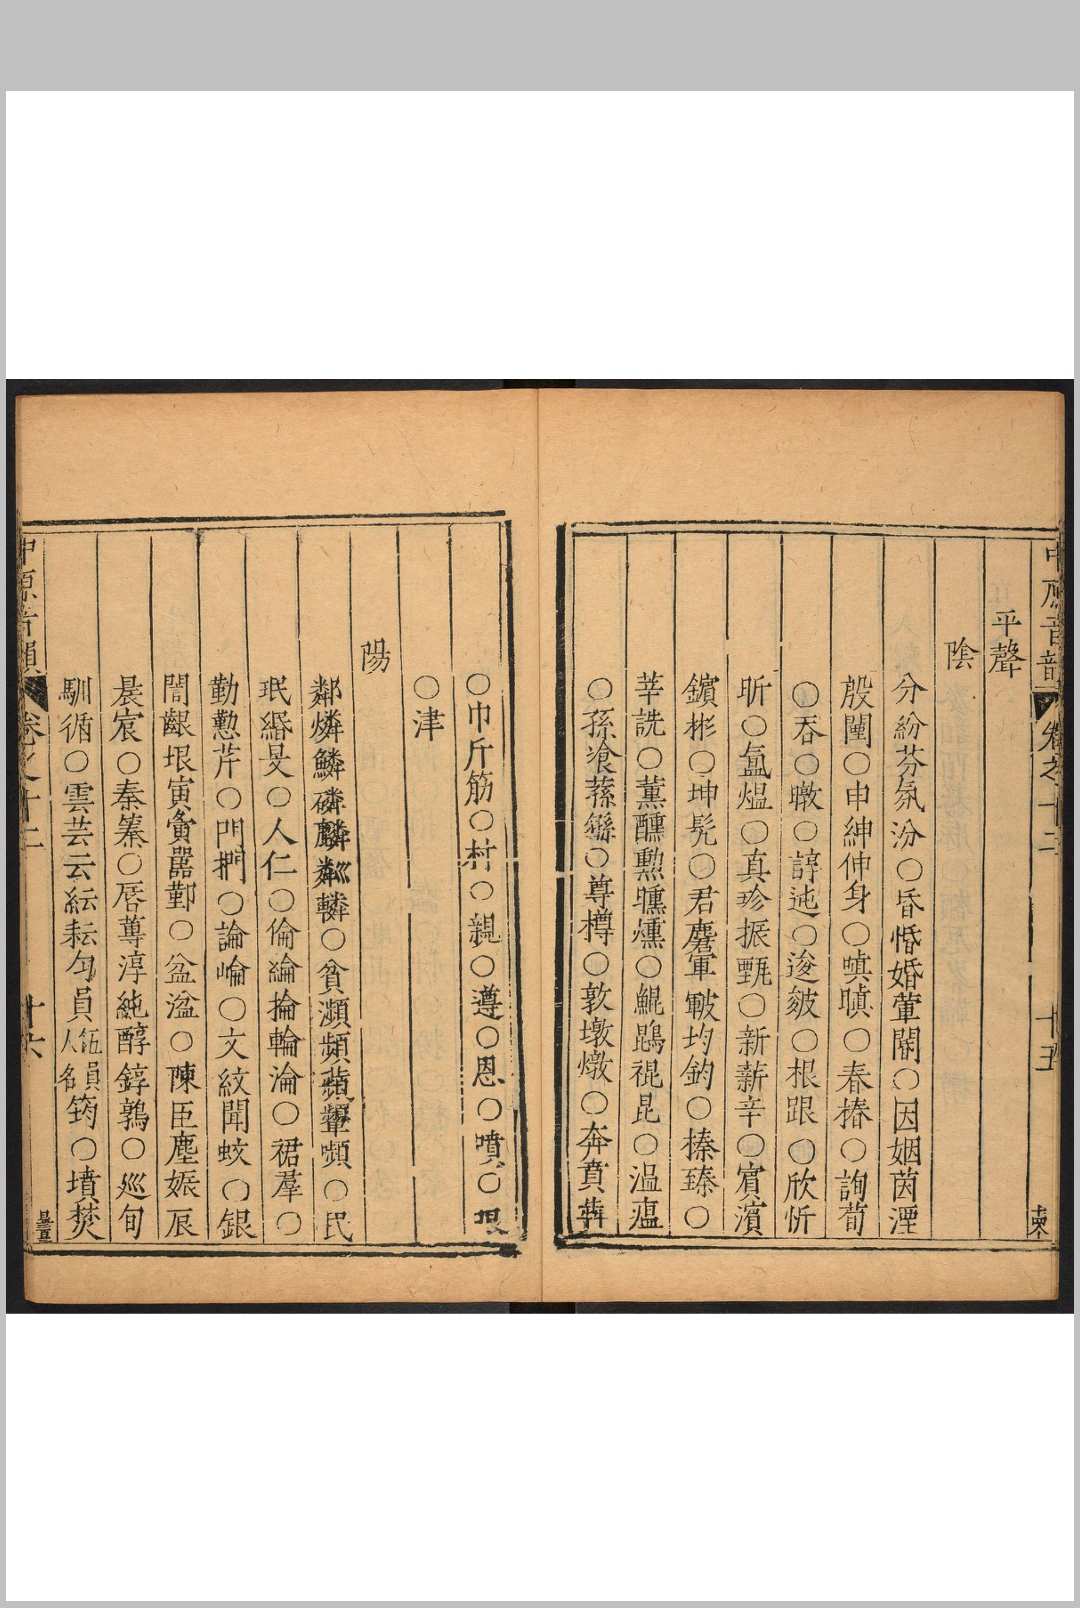 平聲
陰
分紛芬氛汾○昏惛婚葷閽○因姻茵湮
殷闉○申紳伸身○嗔瞋○春椿○詢荀
○吞○暾○諄迍○逡皴○根跟○欣忻
昕○氲煴○真珍振甄○新薪辛○賓濱
鑌彬○坤髡○君麏軍皸均鈞○榛臻○
莘詵○薰醺勲曛燻○鯤鵾裩昆○温瘟
○孫飱蓀猻○尊樽○敦墩燉○奔賁犇
○巾斤筋○村○親○遵○恩○噴○哏
○津
陽
鄰燐鱗磷麟粼轔○貧瀕頻蘋顰嚬○民
珉緡旻○人仁○倫綸掄輪淪○裙羣○
勤懃芹○門捫○論崘○文紋聞蚊○銀
誾齦垠寅夤嚚鄞○盆湓○陳臣塵娠辰
晨宸○秦螓○唇蓴淳純醇錞鶉○巡旬
馴循○雲芸云紜耘匀員伍員人名筠○墳焚
中原音韻
卷之十二
十五
中原音韻
卷之十二
十六